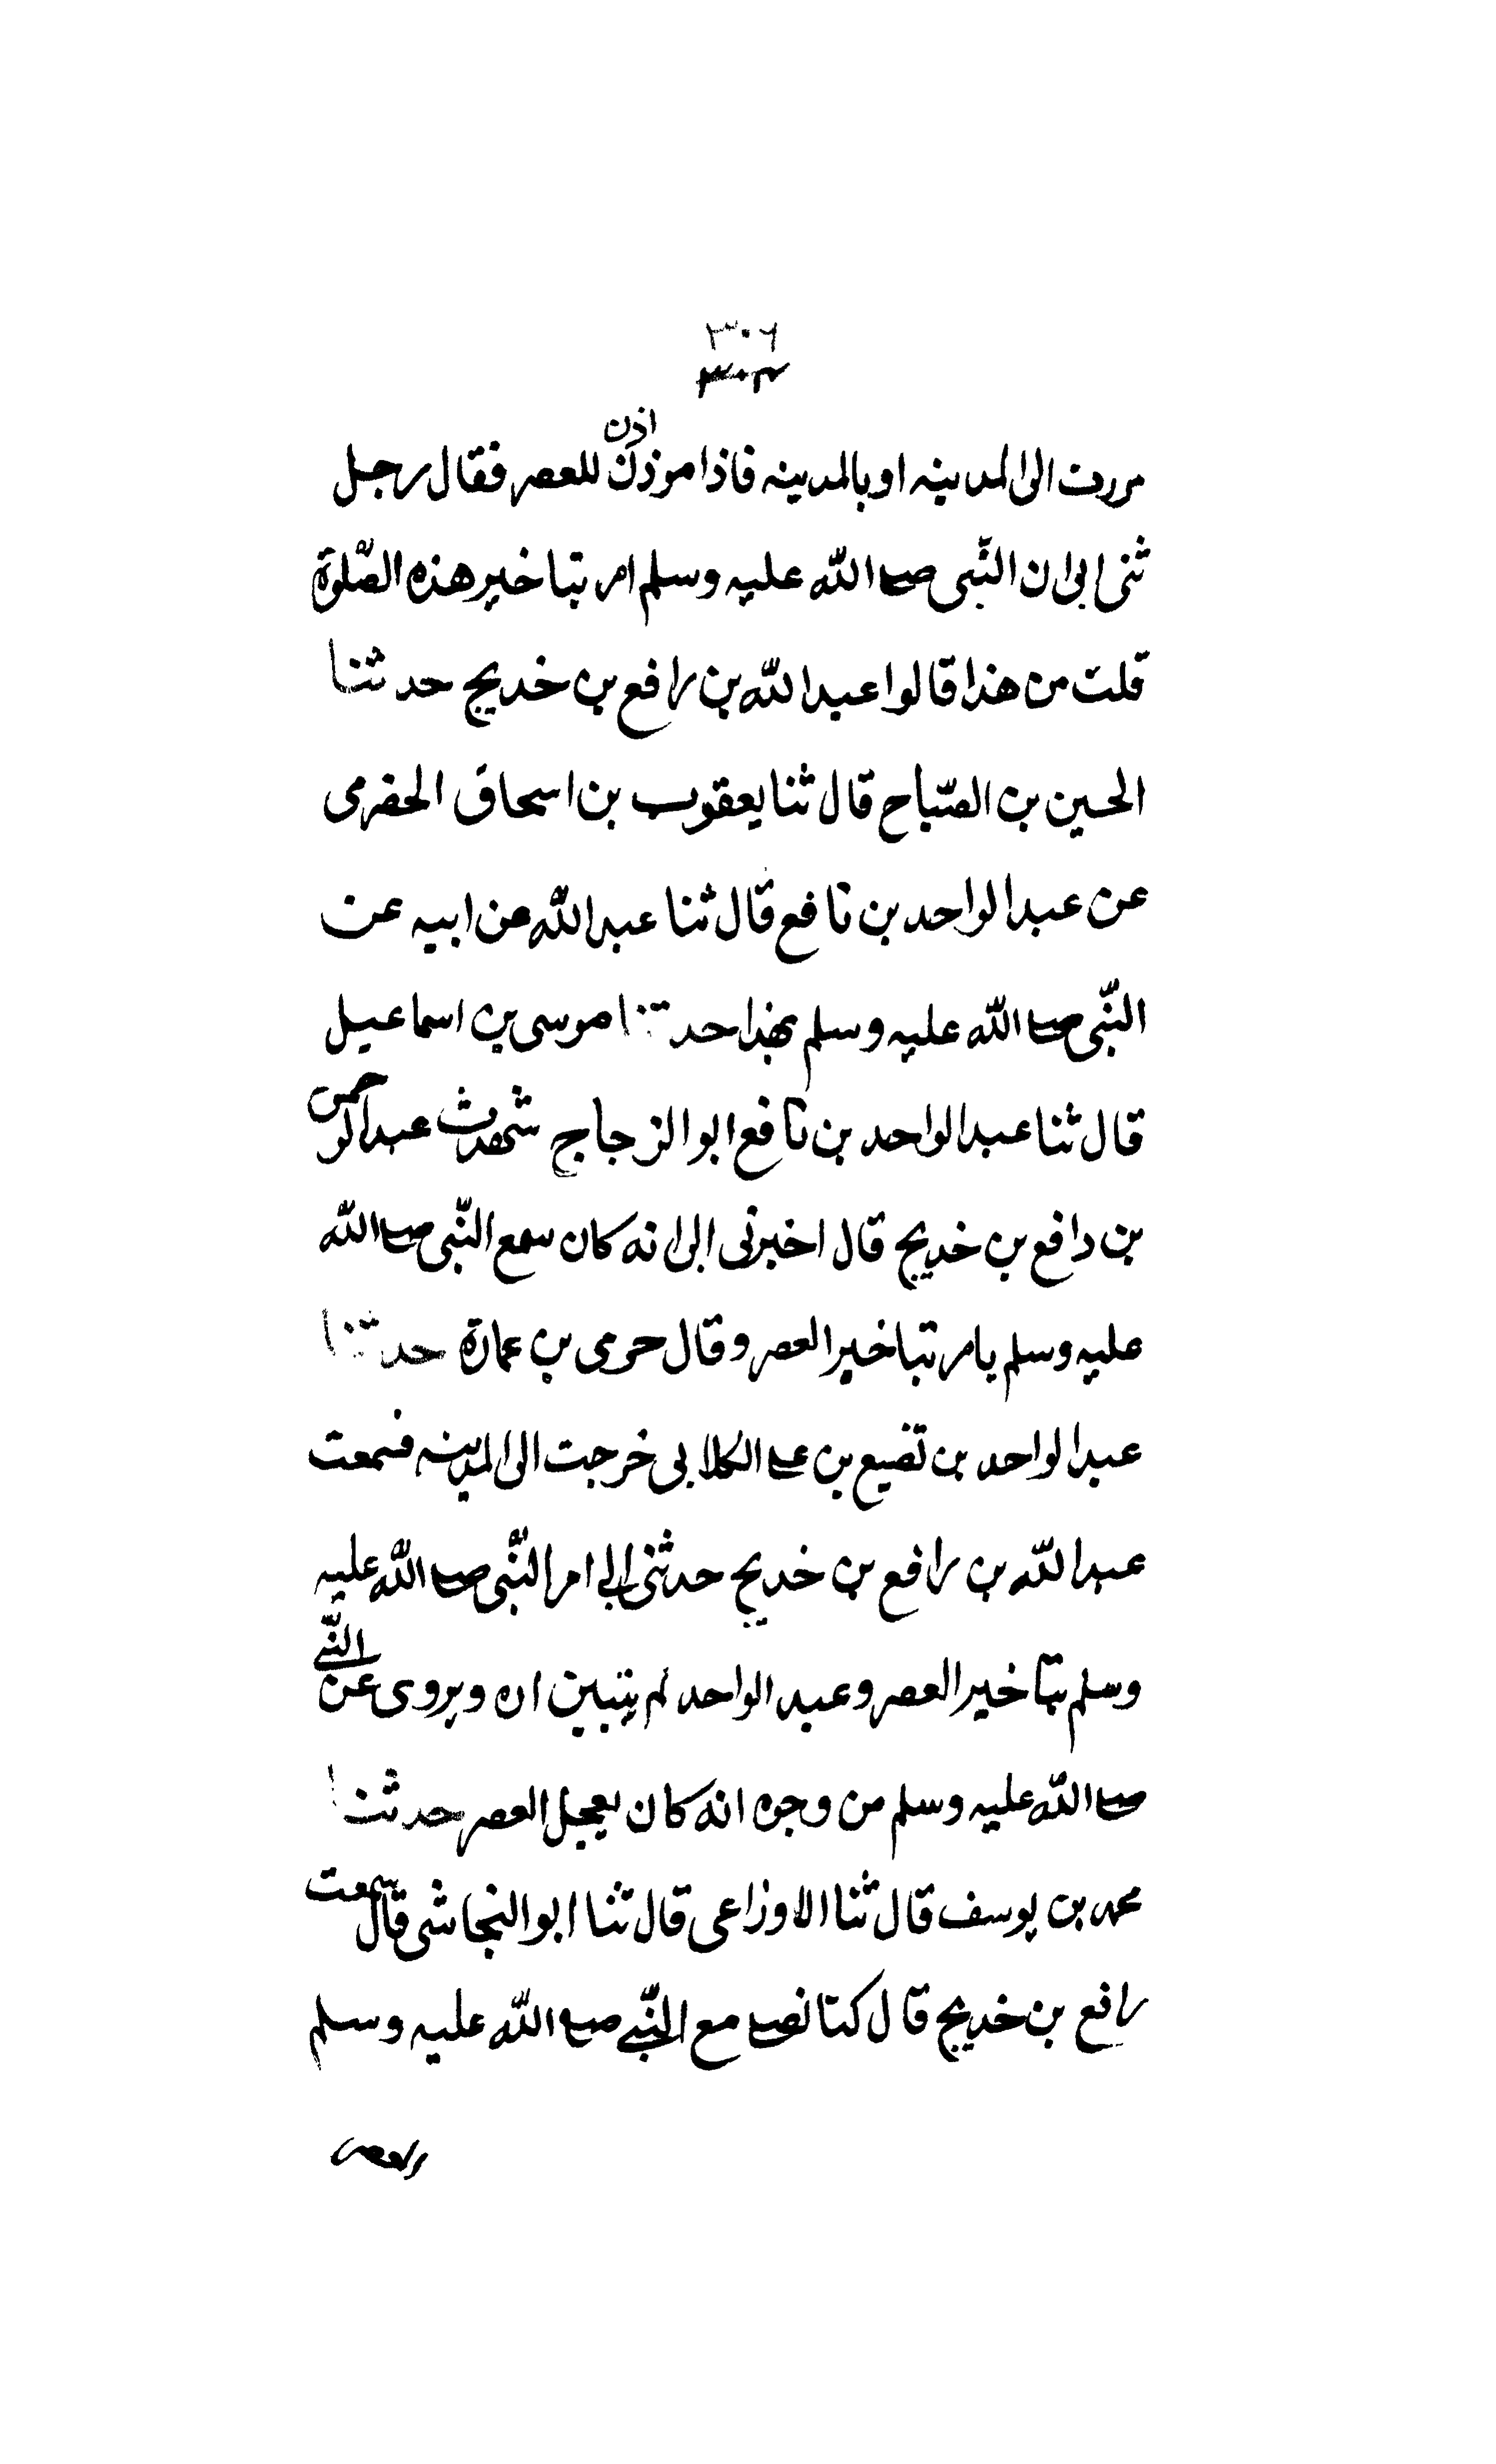 ٣٠٦
مررت الى المدينه او بالمدينه فاذا موذن اذن للعصر فقال رجل
ثنى ابى ان النّبى صلى الله عليه وسلم امر بتاخير هذه الصّلوة
قلت من هذا قالوا عبد الله بن رافع بن خديج حدثنا
الحسين بن الصّباح قال ثنا يعقوب بن اسحاق الحضرمى
عن عبد الواحد بن نافع قال ثنا عبد الله عن ابيه عن
النّبى صلى الله عليه وسلم بهذا حدثنا موسى بن اسماعيل
قال ثنا عبد الواحد بن نافع ابو الزجاج شهدت عبد الرحمن
بن رافع بن خديج قال اخبرنى ابى انه كان سمع النّبى صلى الله
عليه وسلم يامر بتاخير العصر وقال حرمى بن عمارة حدثنا
عبد الواحد بن نفيع بن على الكلابى خرجت الى المدينه فسمعت
عبد الله بن رافع بن خديج حدثنى ابى امر النّبى صلى الله عليه
وسلم بتاخير العصر وعبد الواحد لم يتبين ان ويروى عن النّبى
صلى الله عليه وسلم من وجوه انه كان يعجل العصر حدثنا
محمد بن يوسف قال ثنا الاوزاعى قال ثنا ابو النجاشى قال سمعت
رافع بن خديج قال كنا نصلى مع النّبى صلى الله عليه وسلم
العصر